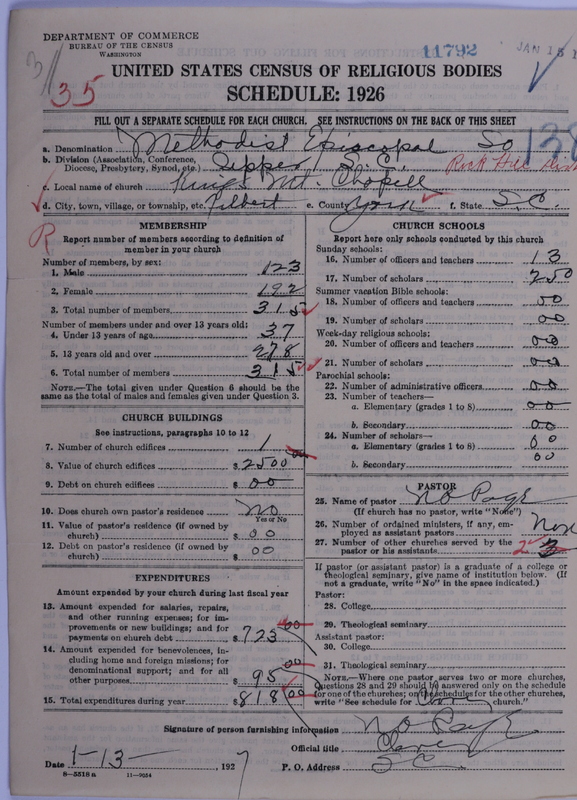 DEPARTMENT OF COMMERCE
BUREAU OF THE CENSUS
WASHINGTON
11792
JAN 15 1
35
UNITED STATES CENSUS OF RELIGIOUS BODIES
SCHEDULE: 1926
FILL OUT A SEPARATE SCHEDULE FOR EACH CHURCH. SEE INSTRUCTIONS ON THE BACK OF THIS SHEET
138
a. Denomination Methodist Episcopal So
b. Division (Association, Conference, Diocese, Presbytery, Synod, etc.) Upper S.C. Rock Hill dist
c. Local name of church Kings Mt. Chapell
d. City, town, village, or township, etc. Filbert e. County York f. State S.C.
R
MEMBERSHIP
Report number of members according to definition of member in your church
Number of members, by sex:
1. Male 123
2. Female 192
3. Total number of members 315
Number of members under and over 13 years old:
4. Under 13 years of age 37
5. 13 years old and over 278
6. Total number of members 315
NOTE.—The total given under Question 6 should be the same as the total of males and females given under Question 3.
CHURCH BUILDINGS
See instructions, paragraphs 10 to 12
7. Number of church edifices 1
8. Value of church edifices $ 2500
9. Debt on church edifices $ 00
10. Does church own pastor's residence? No
Yes or No
11. Value of pastor's residence (if owned by church) $ 00
12. Debt on pastor's residence (if owned by church) $ 00
EXPENDITURES
Amount expended by your church during last fiscal year
13. Amount expended for salaries, repairs, and other running expenses; for improvements or new buildings; and for payments on church debt $ 723 00
14. Amount expended for benevolences, including home and foreign missions; for denominational support; and for all other purposes $ 95 00
15. Total expenditures during year $ 818 00
CHURCH SCHOOLS
Report here only schools conducted by this church
Sunday schools:
16. Number of officers and teachers 13
17. Number of scholars 250
Summer vacation Bible schools:
18. Number of officers and teachers 00
19. Number of scholars 00
Week-day religious schools:
20. Number of officers and teachers 00
21. Number of scholars 00
Parochial schools:
22. Number of administrative officers 00
23. Number of teachers—
a. Elementary (grades 1 to 8) 00
b. Secondary 00
24. Number of scholars—
a. Elementary (grades 1 to 8) 00
b. Secondary 00
PASTOR
25. Name of pastor
(If church has no pastor, write "None")
26. Number of ordained ministers, if any, employed as assistant pastors None
27. Number of other churches served by the pastor or his assistants 2 3
If pastor (or assistant pastor) is a graduate of a college or theological seminary, give name of institution below. (If not a graduate, write "No" in the space indicated.)
Pastor:
28. College
29. Theological seminary
Assistant pastor:
30. College
31. Theological seminary
NOTE.—Where one pastor serves two or more churches, Questions 28 and 29 should be answered only on the schedule for one of the churches; on the schedules for the other churches, write "See schedule for church."
Signature of person furnishing information
Official title
Date 1-13 , 1927
P. O. Address S C
8—5518 a 11—9054